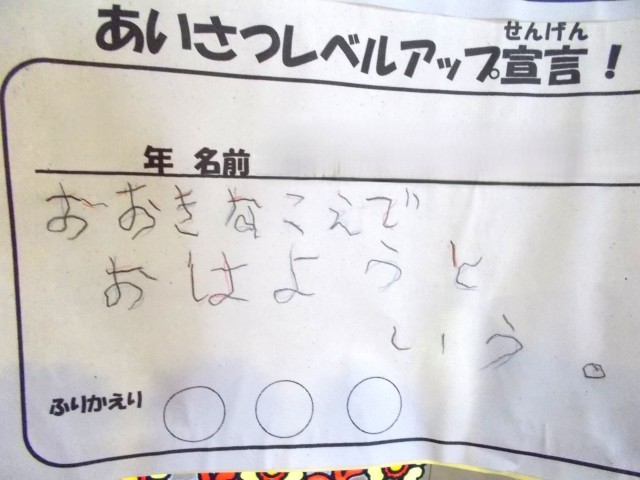 せんげん
あいさつレベルアップ宣言！
年 名前
おおきなこえで
おはようと
いう。
ふりかえり